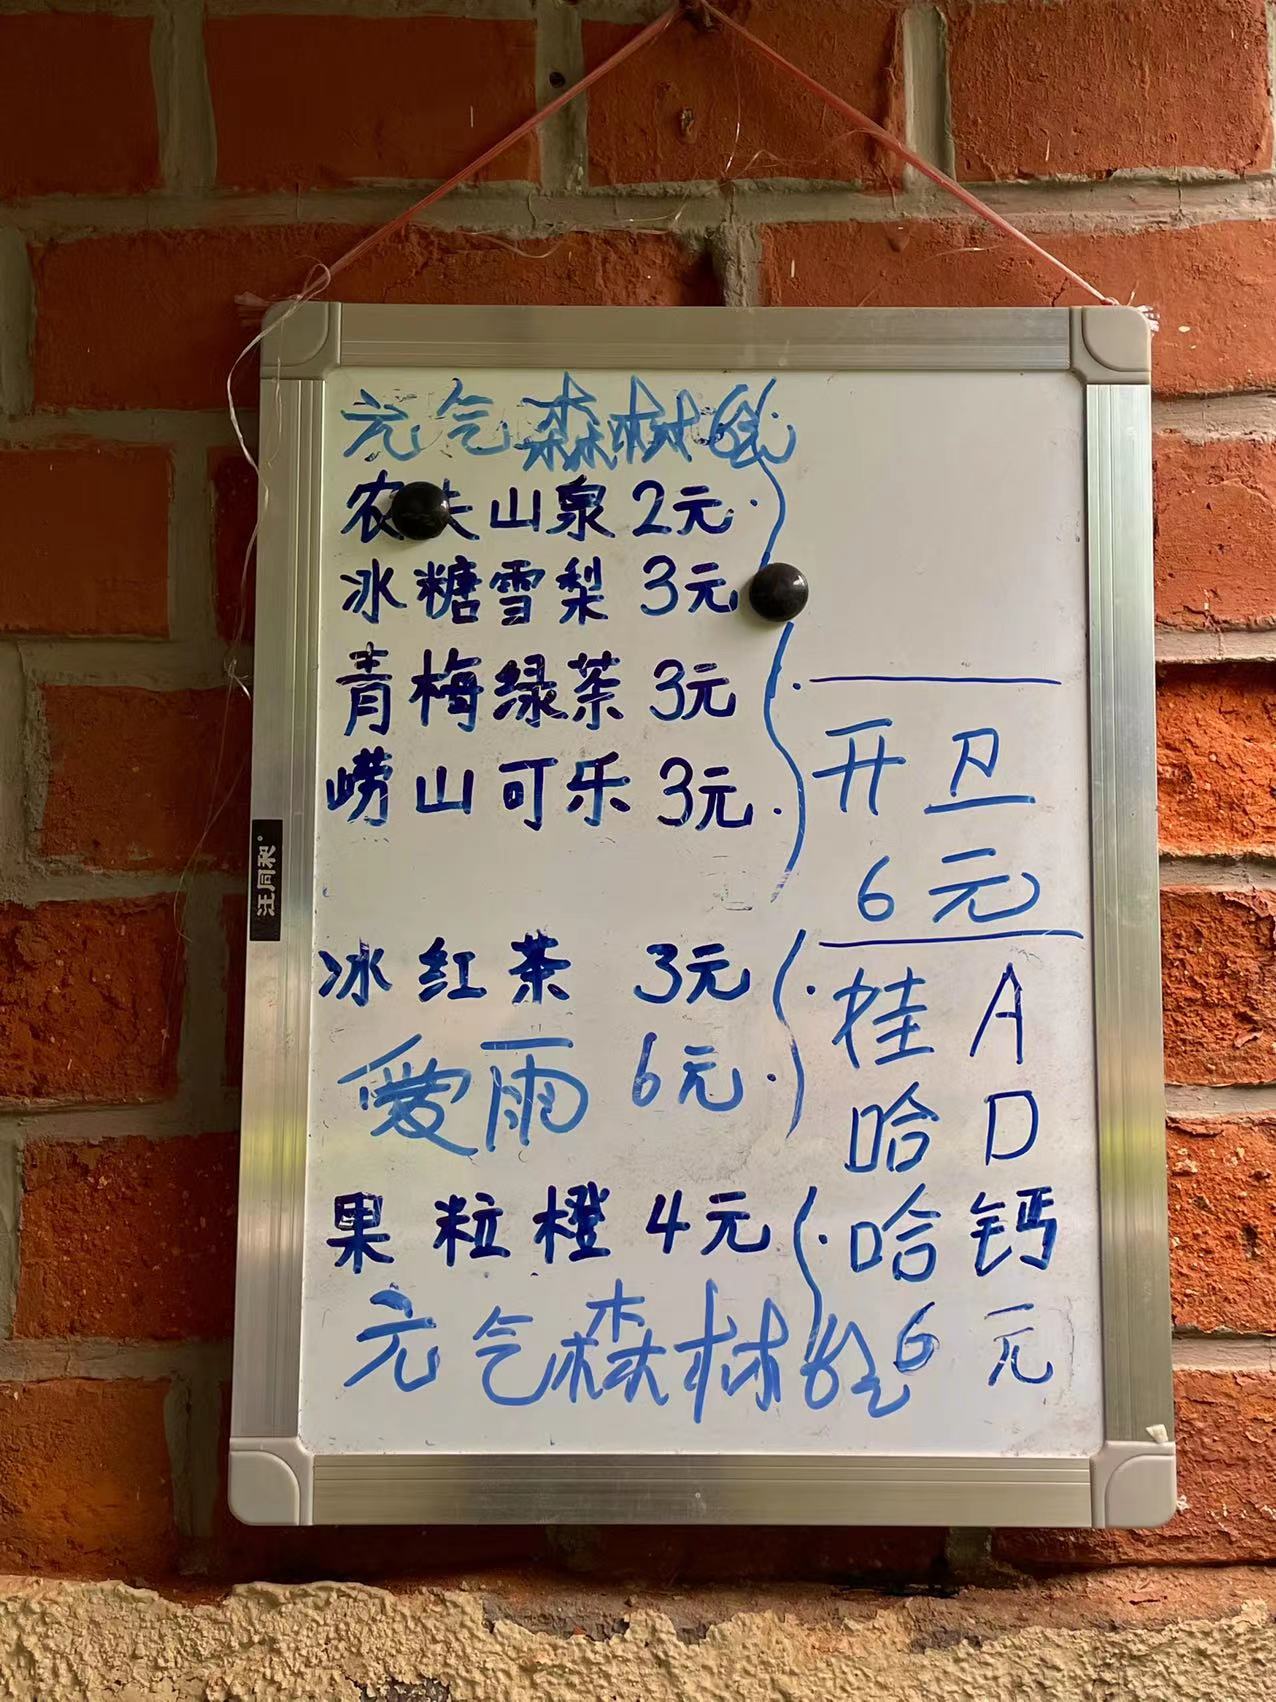 元气森林6元
农夫山泉 2元
冰糖雪梨 3元
青梅绿茶 3元
崂山可乐 3元
冰红茶 3元
爱雨 6元
果粒橙 4元
元气森林6元
开卫
6元
娃哈哈
AD钙
6元